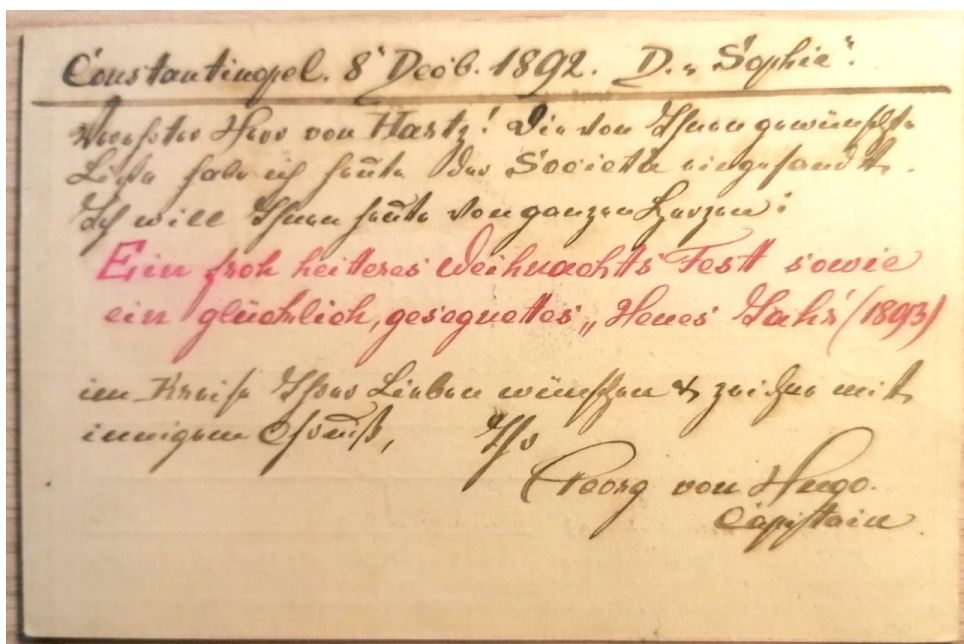 Constantinopel. 8 Decb. 1892. D. „Sophie“.
Werthster Herr von Hartz! Die von Ihnen gewünschte
Liste habe ich heute der Societa eingesandt.
Ich will Ihnen heute von ganzen Herzen:
Ein froh heiteres Weihnachts Fest sowie
ein glücklich, gesegnettes „Neues Jahr“ (1893)
im Kreise Ihrer Lieben wünschen & zeichne mit
innigem Gruß, Ihr
Georg von Hugo.
Capitain